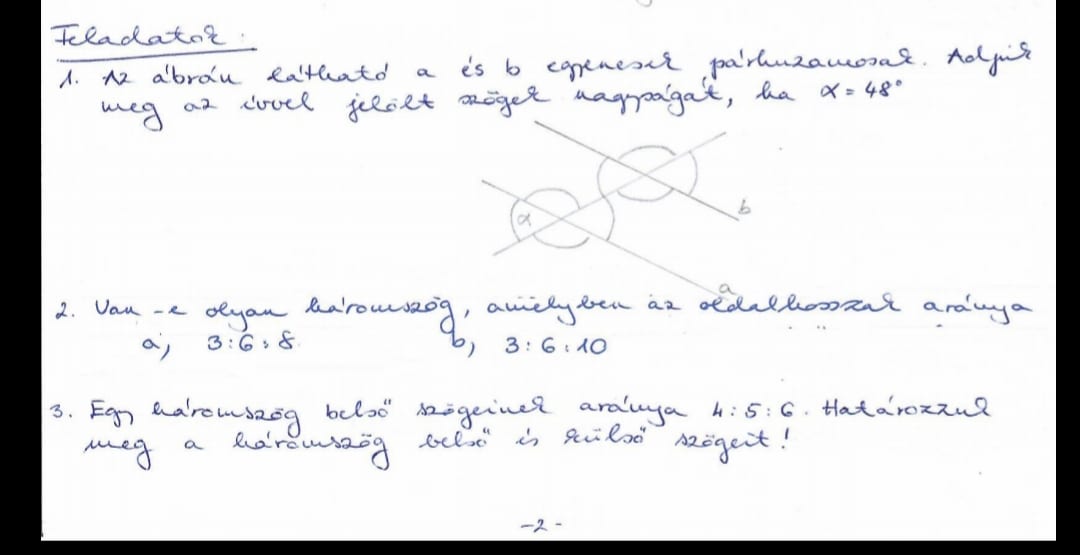 Feladatok:
1. Az ábrán látható a és b egyenesek párhuzamosak. Adjuk
meg az ívvel jelölt szögek nagyságát, ha α = 48°
b
α
a
2. Van-e olyan háromszög, amelyben az oldalhosszak aránya
a, 3:6:8 b, 3:6:10
3. Egy háromszög belső szögeinek aránya 4:5:6. Határozzuk
meg a háromszög belső és külső szögeit!
-2-